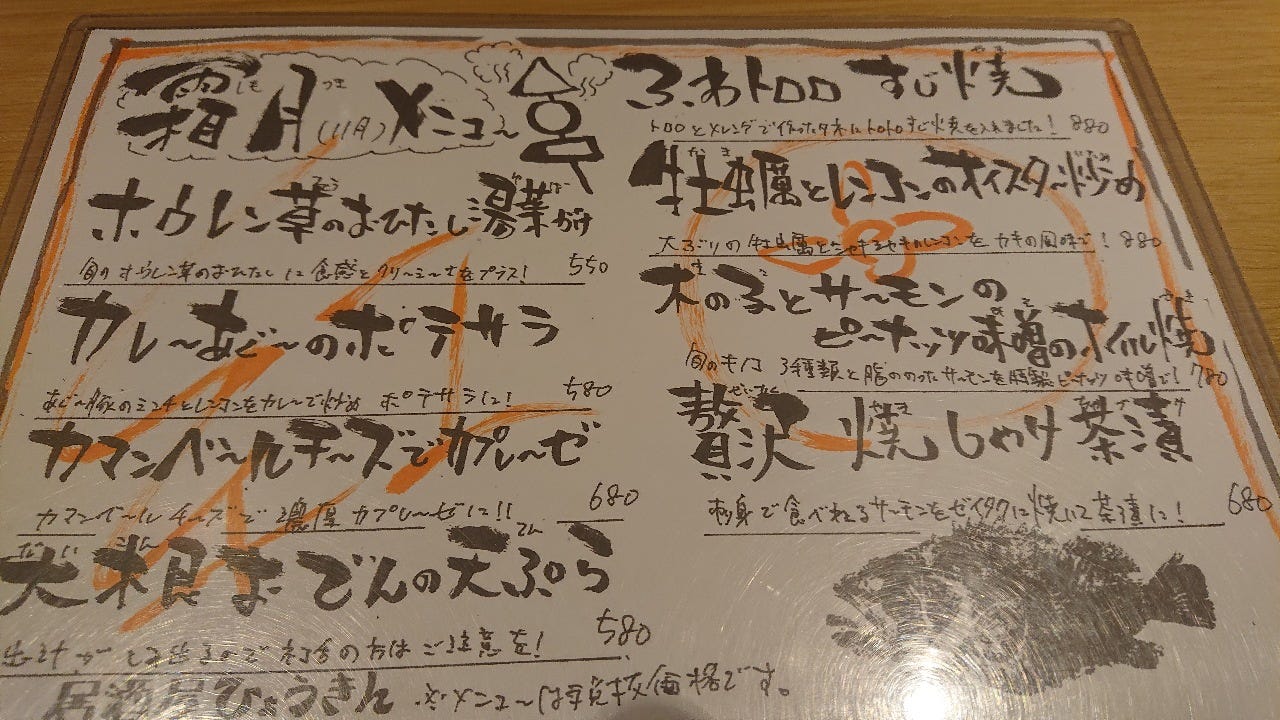 霜月(11月)メニュー
しも つき
ホウレン草のおひたし湯葉がけ
そう ゆば
旬のホウレン草のおひたしに食感とクリーミーさをプラス! 550
カレーあぐーのポテサラ
あぐー豚のミンチとレンコンをカレーで炒め ポテサラに! 580
カマンベールチーズでカプレーゼ
カマンベールチーズで濃厚カプレーゼに!! 680
大根おでんの天ぷら
だい こん てん
出汁がしみ出るのでネコ舌の方はご注意を! 580
居酒屋ひょうきん
※メニューは税抜価格です。
ふわトロロ すじ焼
やき
トロロとメレンゲで作ったタネにトロトロすじ焼を入れました! 880
牡蠣とレンコンのオイスター炒め
かき
大ぶりの牡蠣とシャキシャキのレンコンをカキの風味で! 880
木の子とサーモンの
き こ
ピーナッツ味噌のオイル焼
み そ やき
旬のキノコ 3種類と脂ののったサーモンを特製ピーナッツ味噌で! 780
贅沢 焼しゃけ茶漬
ぜいたく やき ちゃづけ
刺身で食べれるサーモンをゼイタクに焼いて茶漬に! 680